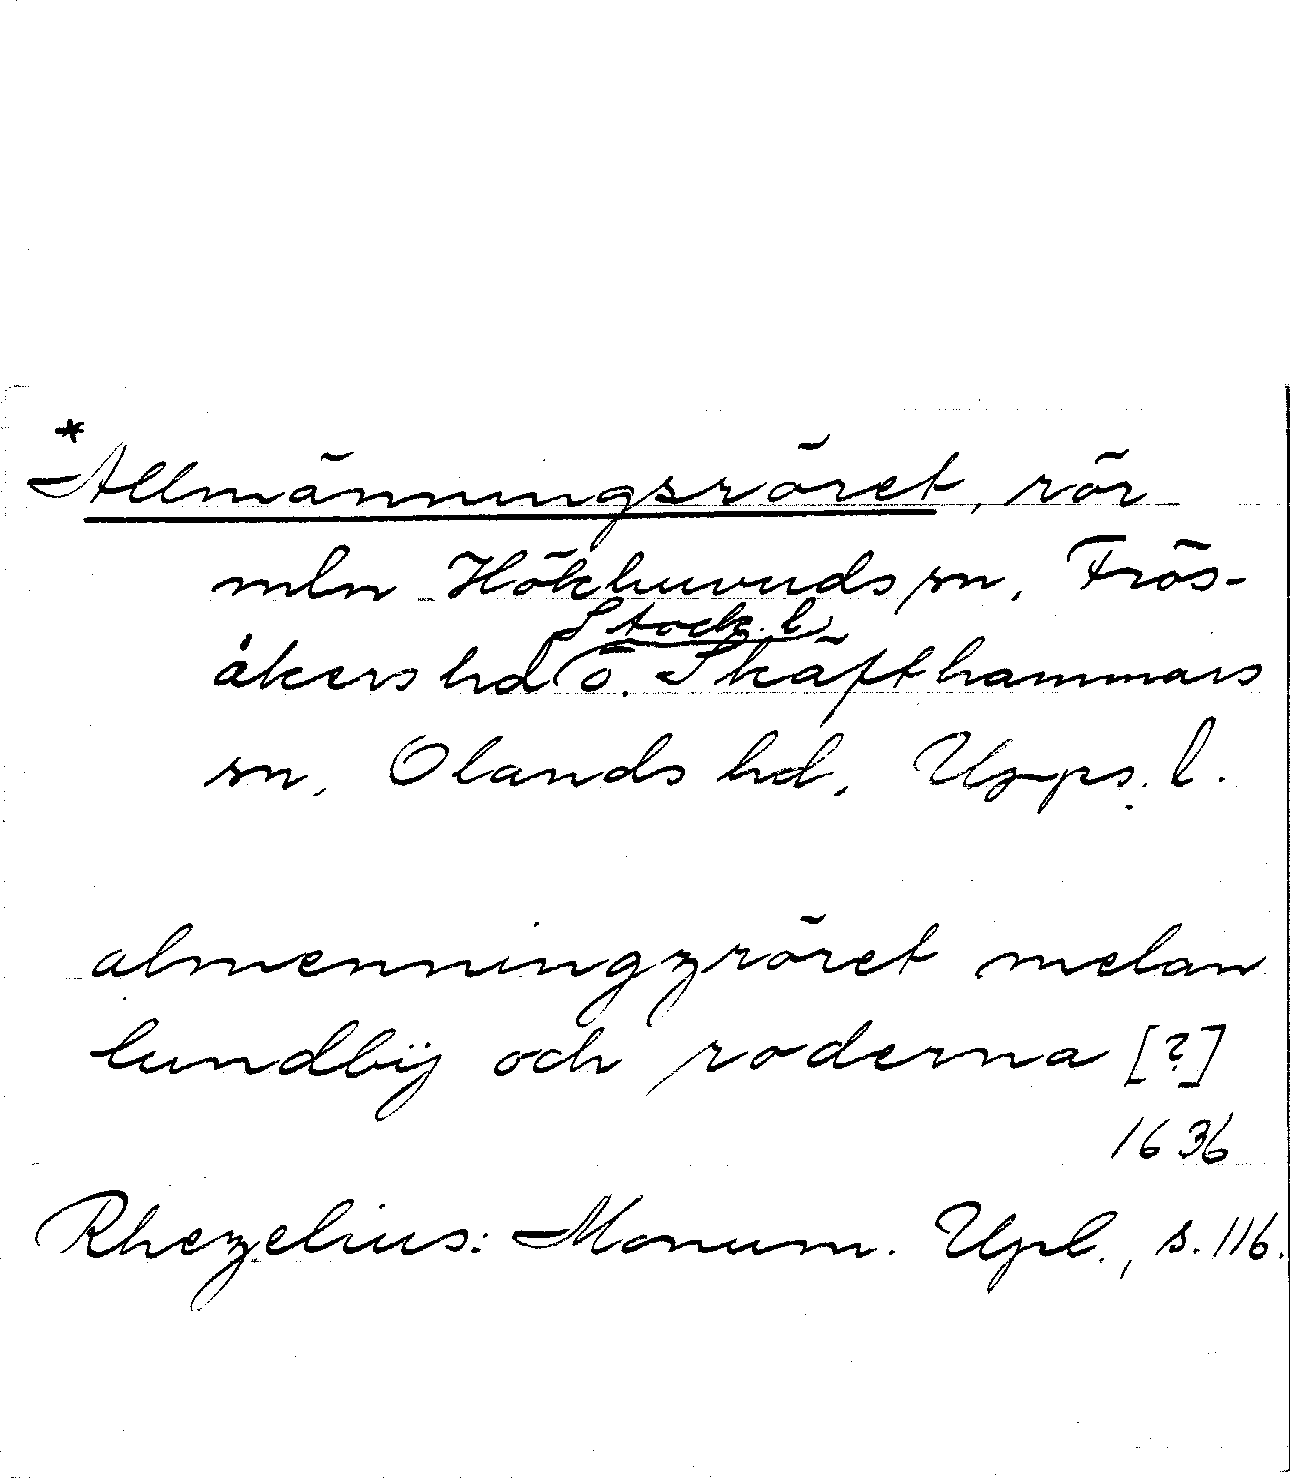 *Allmänningsröret, rör
mln Hökhuvuds sn, Frös-
Stock. l.
åkers hd o. Skäfthammars
sn, Olands hd, Upps. l.
almenningzröret melan
lundbÿ och roderna [?]
1636
Rhezelius: Monum. Upl., s. 116.